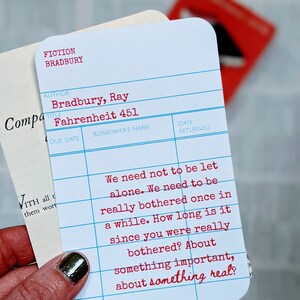 FICTION
BRADBURY
AUTHOR
Bradbury, Ray
Fahrenheit 451
DUE DATE
BORROWERS NAME
DATE RETURNED
We need not to be let
alone. We need to be
really bothered once in
a while. How long is it
since you were really
bothered? About
something important,
about something real?
Compa
WITH all
them wor